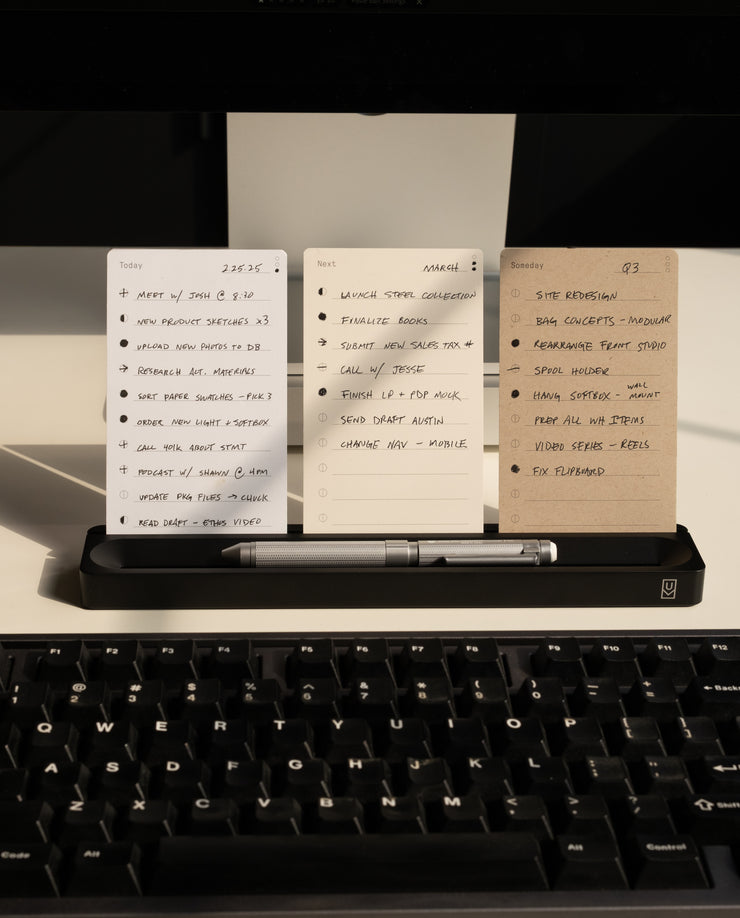 Today 2.25.25
MEET W/ JOSH @ 8:30
NEW PRODUCT SKETCHES x3
UPLOAD NEW PHOTOS TO DB
RESEARCH ALT. MATERIALS
SORT PAPER SWATCHES - PICK 3
ORDER NEW LIGHT + SOFTBOX
CALL 401K ABOUT STMT
PODCAST W/ SHAWN @ 4PM
UPDATE PKG FILES → CHUCK
READ DRAFT - ETHOS VIDEO
Next MARCH
LAUNCH STEEL COLLECTION
FINALIZE BOOKS
SUBMIT NEW SALES TAX #
CALL W/ JESSE
FINISH LP + PDP MOCK
SEND DRAFT AUSTIN
CHANGE NAV - MOBILE
Someday Q3
SITE REDESIGN
BAG CONCEPTS - MODULAR
REARRANGE FRONT STUDIO
SPOOL HOLDER
HANG SOFTBOX - WALL MOUNT
PREP ALL WH ITEMS
VIDEO SERIES - REELS
FIX FLIPBOARD
F1 F2 F3 F4 F5 F6 F7 F8 F9 F10 F11 F12
! @ # $ % ^ & * ( ) _ + ← Backs
1 2 3 4 5 6 7 8 9 0 - =
Q W E R T Y U I O P { }
[ ]
A S D F G H J K L : "
Z X C V B N M < > ? Shift
Code Alt Alt Control